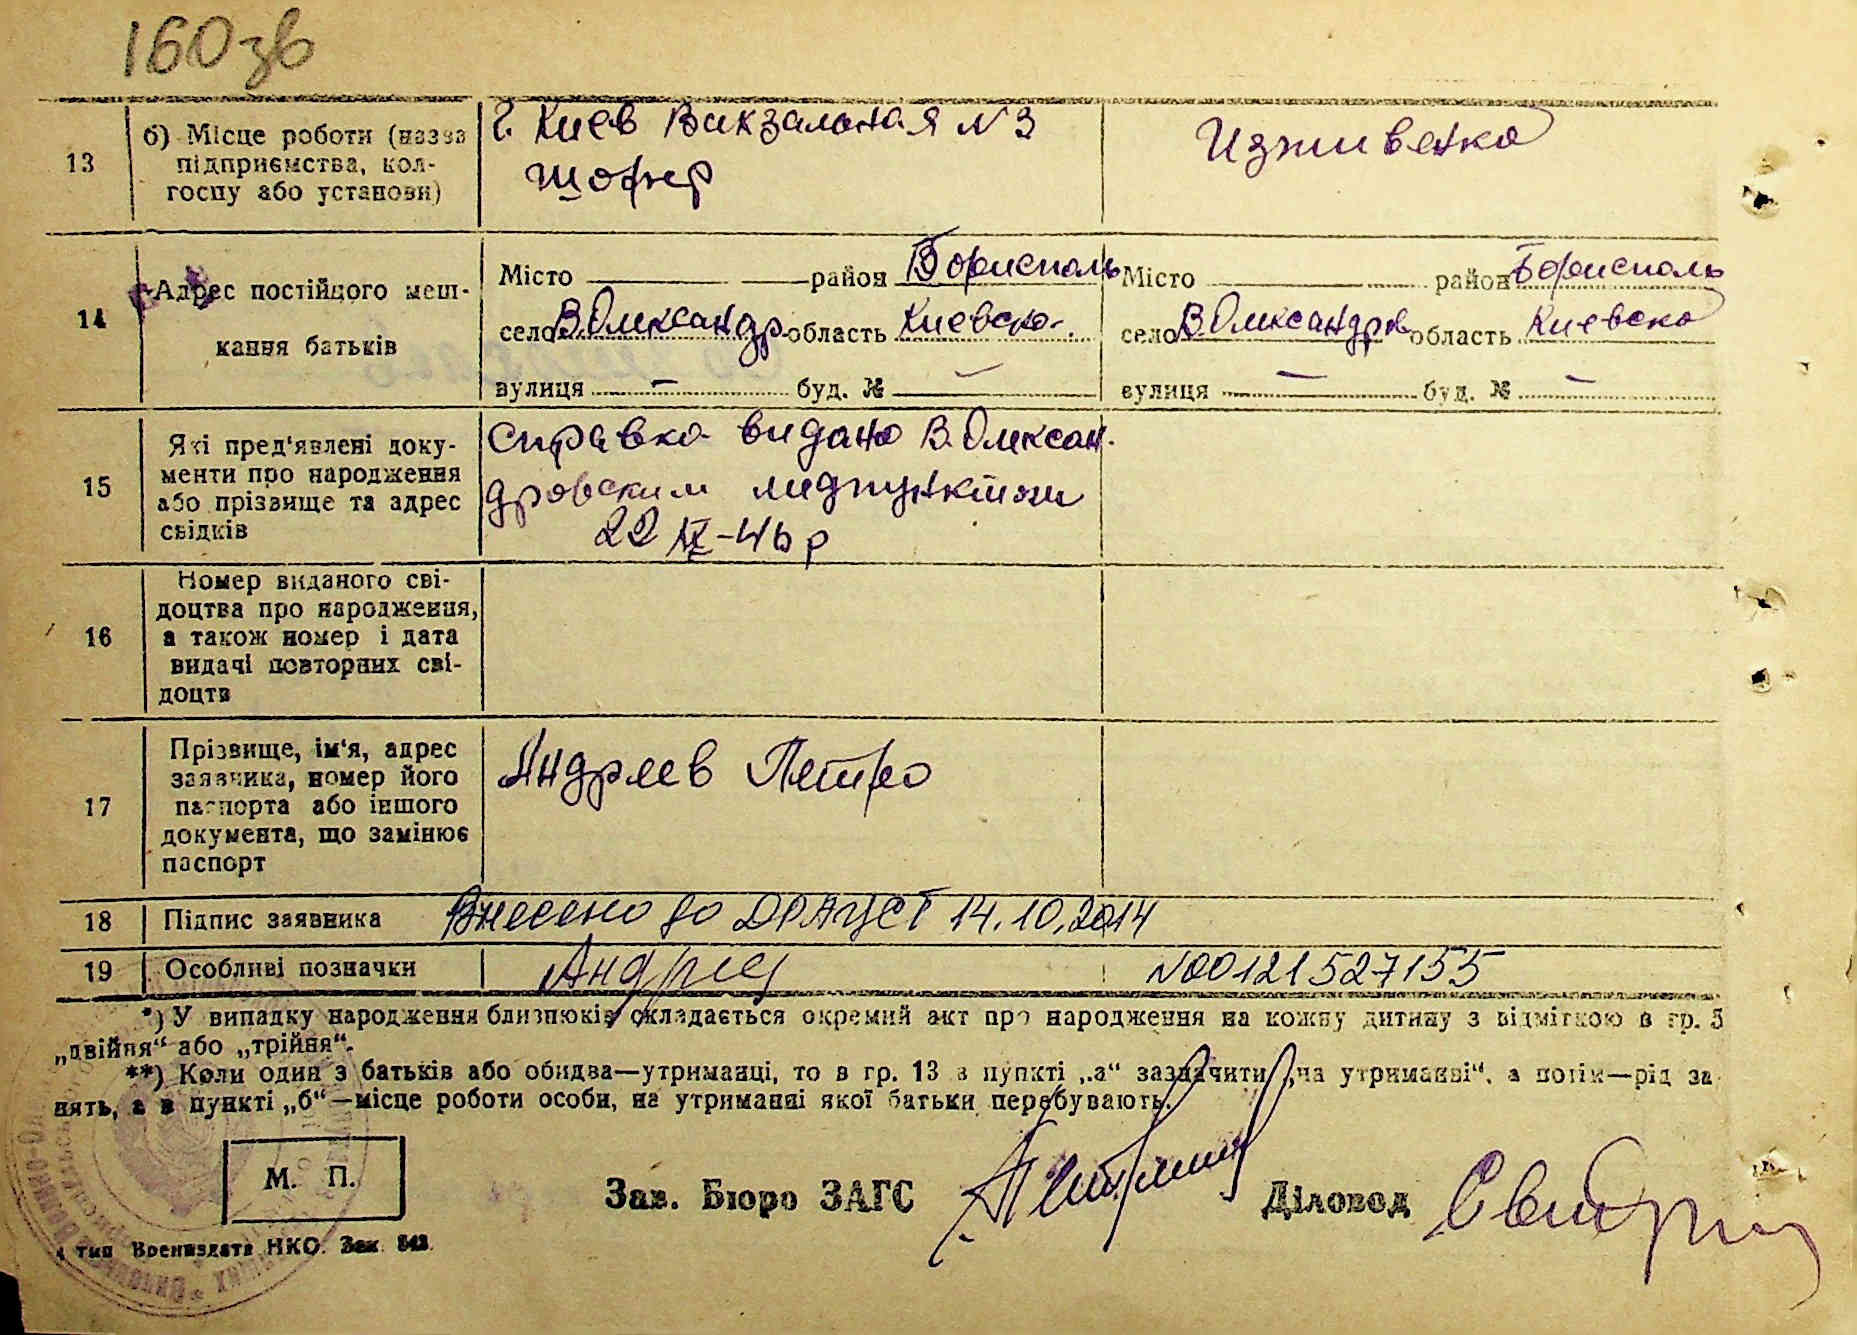 160зв
13 б) Місце роботи (назва підприємства, кол-госпу або установи)
г. Киев Вакзальная N 3
шофер
Изживенка
14 Адрес постійного меш-
кання батьків
Місто район Бориспаль
село В.Олександр. область Киевска.
вулиця — буд. № —
Місто район Бориспаль
село В.Олександров область Киевска
вулиця — буд. № —
15 Які пред'явлені доку-
менти про народження
або прізвище та адрес
свідків
справка видана В.Олексан.
дровским медпунктом
22 IX-46 р
16 Номер виданого сві-
доцтва про народження,
а також номер і дата
видачі повторних сві-
доцтв
17 Прізвище, ім'я, адрес
заявника, номер його
паспорта або іншого
документа, що замінює
паспорт
Андреев Петро
18 Підпис заявника Внесено до ДРАЦСГ 14.10.2014
19 Особливі позначки Андрее N00121527155
*) У випадку народження близнюків складається окремий акт про народження на кожну дитину з відміткою в гр. 5
„двійня“ або „трійня“.
**) Коли один з батьків або обидва—утриманці, то в гр. 13 в пункті „а“ зазначити „на утриманні“, а потім—рід за
нять, а в пункті „б“—місце роботи особи, на утриманні якої батьки перебувають.
М. П.
Зав. Бюро ЗАГС
Діловод
4 тип Воениздата НКО. Зак. 843.